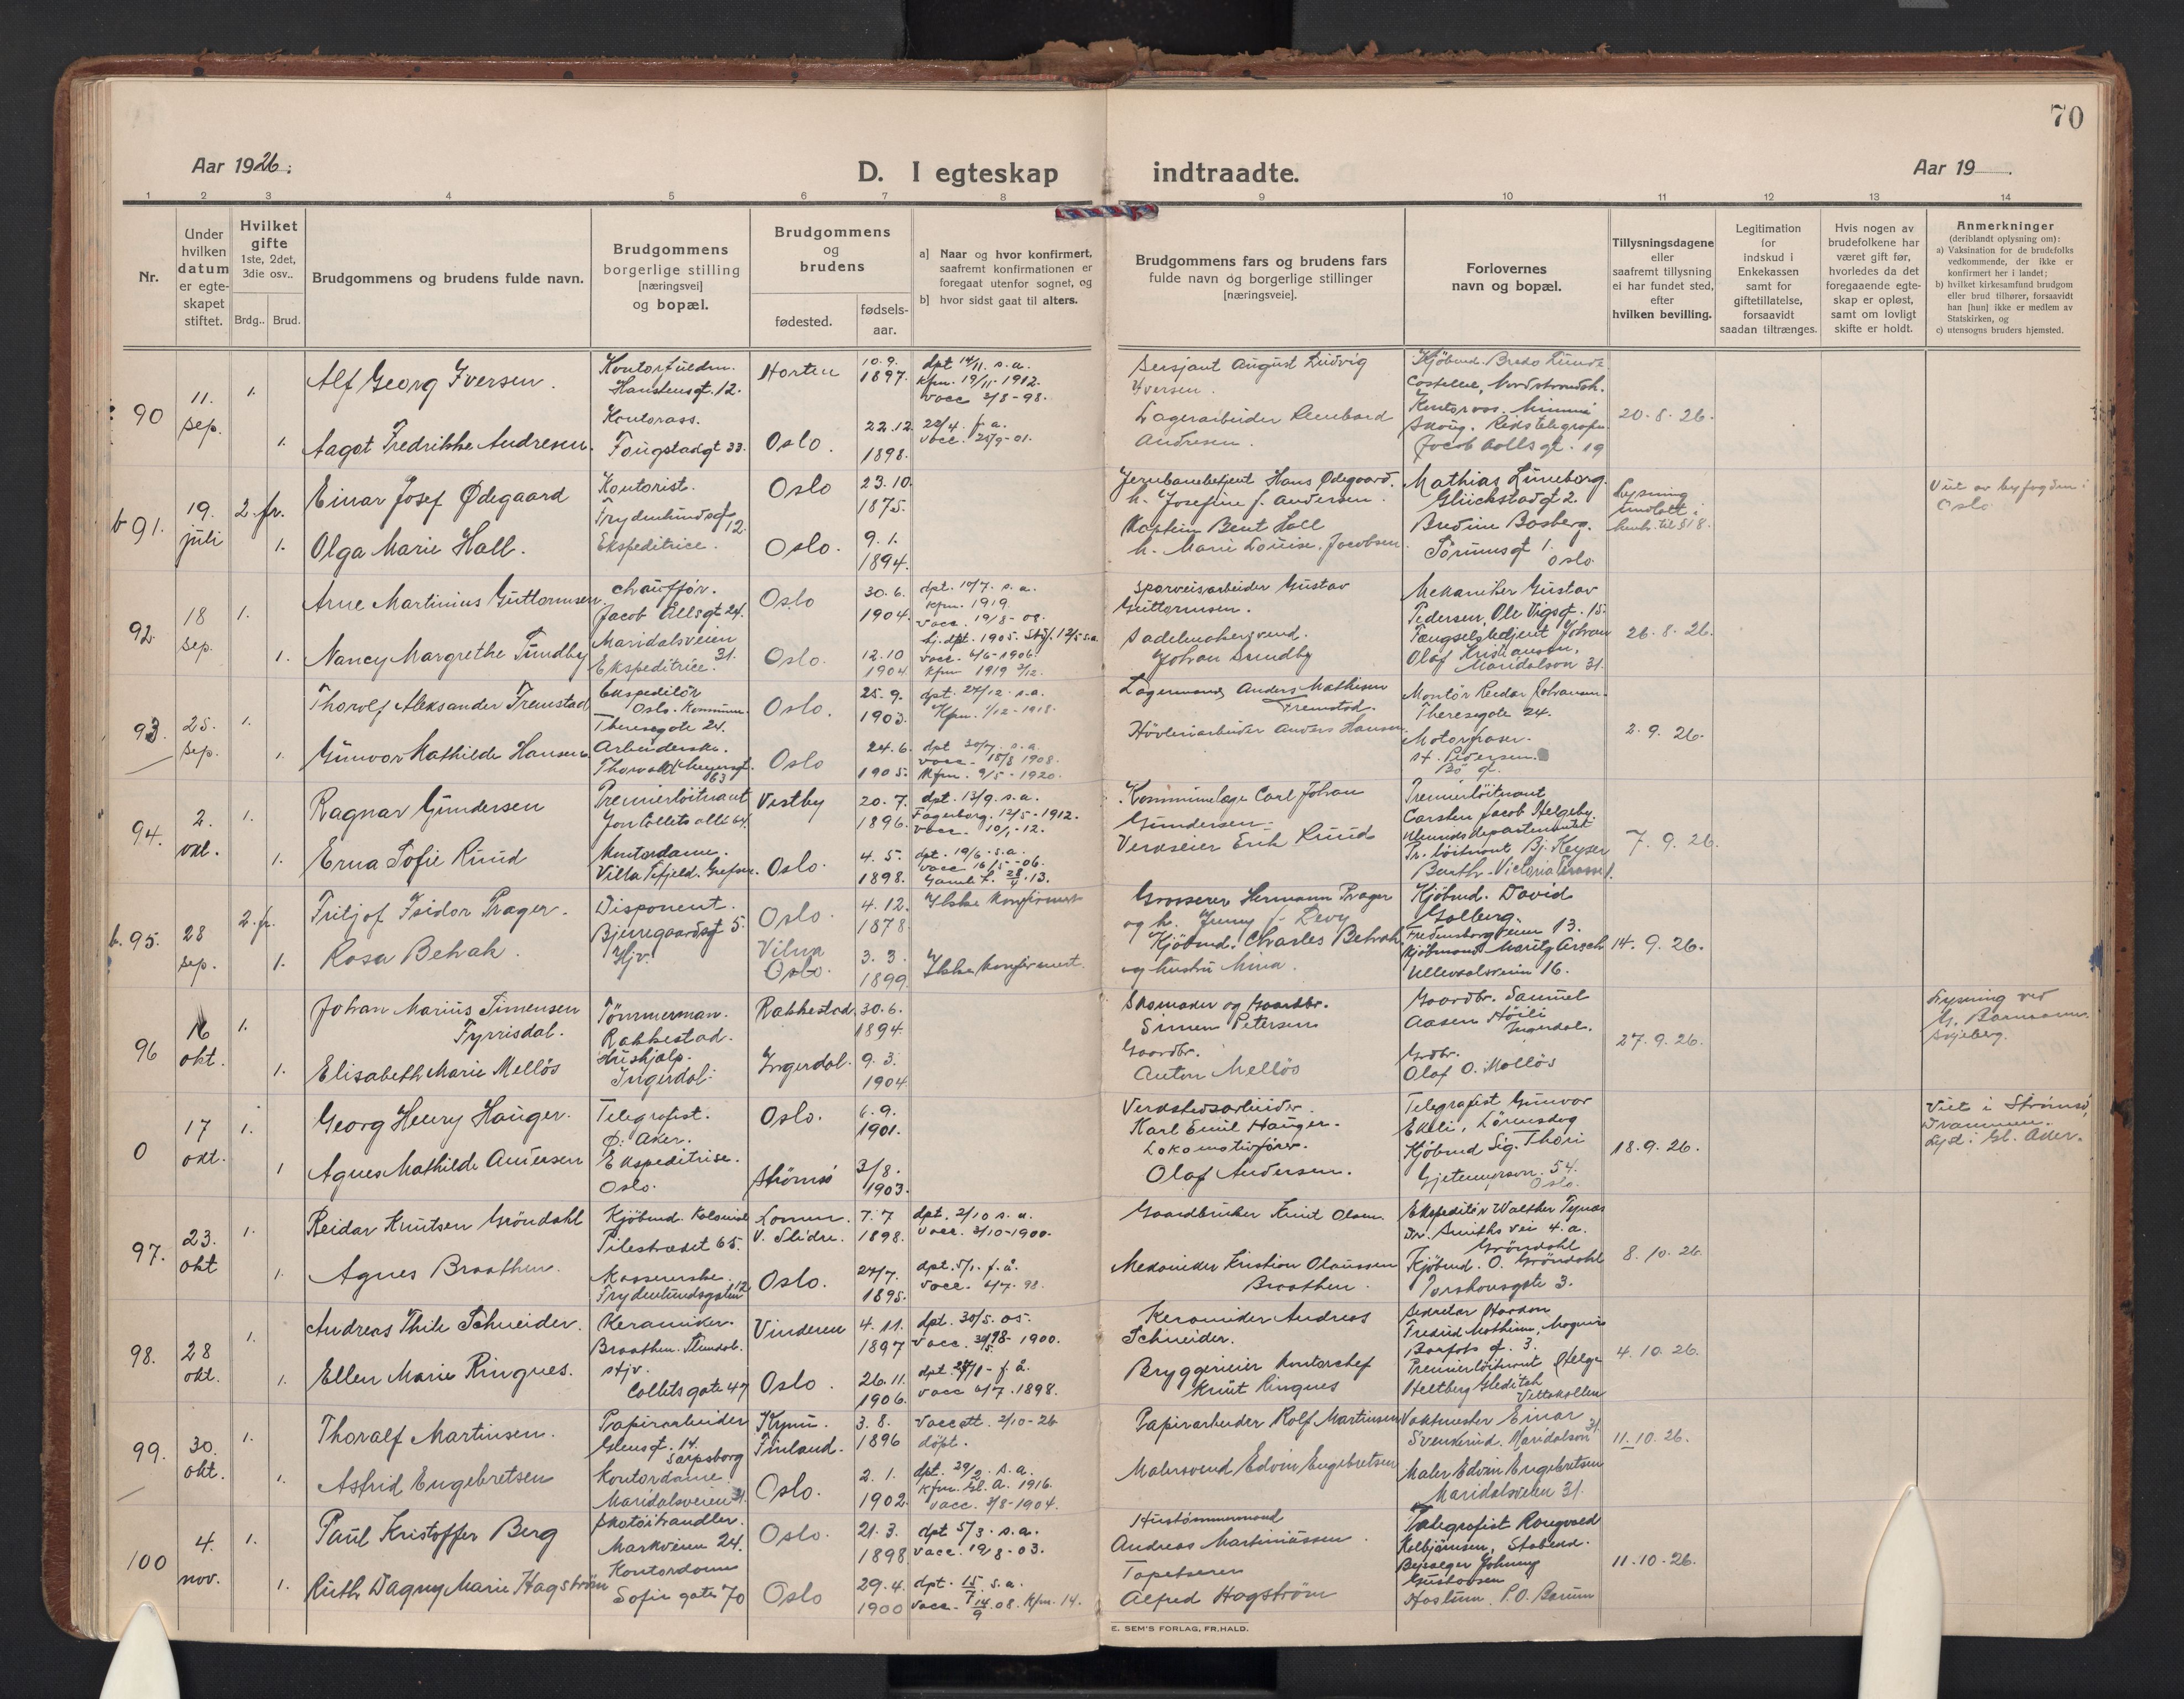 70
Aar 1926.
D. I egteskap indtraadte.
Aar 19
1 2 3 4 5 6 7 8 9 10 11 12 13 14
Nr.
Under hvilken datum er egte-skapet stiftet.
Hvilket gifte 1ste, 2det, 3die osv..
Brdg.. Brud.
Brudgommens og brudens fulde navn.
Brudgommens borgerlige stilling [næringsvei] og bopæl.
Brudgommens og brudens
fødested.
fødsels-aar.
a] Naar og hvor konfirmert, saafremt konfirmationen er foregaat utenfor sognet, og
b] hvor sidst gaat til alters.
Brudgommens fars og brudens fars fulde navn og borgerlige stillinger [næringsveie].
Forlovernes navn og bopæl.
Tillysningsdagene eller saafremt tillysning ei har fundet sted, efter hvilken bevilling.
Legitimation for indskud i Enkekassen samt for giftetillatelse, forsaavidt saadan tiltrænges.
Hvis nogen av brudefolkene har været gift før, hvorledes da det foregaaende egte-skap er opløst, samt om lovligt skifte er holdt.
Anmerkninger
(deriblandt oplysning om):
a) Vaksination for de brudefolks vedkommende, der ikke er konfirmert her i landet;
b) hvilket kirkesamfund brudgom eller brud tilhører, forsaavidt han [hun] ikke er medlem av Statskirken, og
c) utensogns bruders hjemsted.
90
11. sep.
1.
Alf Georg Iversen.
Hanstensgt. 12.
Horten
10.9. 1897.
dpt 14/11. s.a.
kfm. 19/11-1912.
vacc 2/8-98.
Sersjant August Ludvig Iversen.
1.
Aagot Fredrikke Andresen.
Kontorass.
Fougstadgt 33.
Oslo.
22.12 1898.
22/4. f.a.
Lagerarbeider
Andresen.
Jacob Aallsgt. 19
20-8-26.
b 91.
19. juli
2. fr.
Einar Josef Ødegaard
Kontorist.
Frydenlundsgt 12.
Oslo
23.10. 1875.
Jernbanebetjent Hans Ødegaard.
h. Josefine f. Andersen.
Mathias Luneborg.
Glückstadgt 2.
1.
Olga Marie Hall.
Ekspeditrice.
Oslo.
9.1. 1894.
Kaptein Bent Hall
h. Marie Louise. Jacobsen
Sørumsgt 1. Oslo
Lysning
til §18.
Viet av byfogden i Oslo
92.
18 sep.
1.
Arne Martinius Guttormsen
chauffør.
Jacob Allsgt 24.
Oslo
30.6. 1904.
dpt. 10/7. s.a.
kfm. 1919.
vacc. 19/8-08.
Sporveisarbeider Gustav Guttormsen.
Mekaniker Gustav Pedersen, Ole Vigsgt. 15.
1.
Nancy Margrethe Sundby
Maridalsveien 31.
Ekspeditrice.
Oslo.
12.10 1904
vacc. 6/6-1906.
kfm 1919
Sadelmakersvend.
Johan Sundby
Fængselsbetjent Johan Olaf Kristiansen,
Maridalsvn 31.
26.8.26.
93.
25. sep.
1.
Thorolf Aleksander Fremstad
Ekspeditør
Oslo. Kommune.
Theresegate 24.
Oslo.
25.9. 1903.
dpt. 27/12. s.a.
Kfm. 1/12-1918.
Lagermand Anders Mathisen Fremstad.
Montør Reidar Johansen.
Theresegate 24.
1.
Gunvor Mathilde Hansen.
Arbeiderske.
Thorvald Meyersgt. 63
Oslo
24.6. 1905.
dpt 30/7. s.a.
vacc. 15/8 1908.
kfm. 9/5-1920.
Høvleriarbeider Anders Hansen
Pedersen.
2.9.26.
94.
2. okt.
1.
Ragnar Gundersen
Premierløitnant
Jon Collets allé 64.
Vestby
20.7. 1896.
dpt. 13/9. s.a.
Fagerborg. 12/5-1912.
vacc. 10/1-12.
Kommunelæge Carl Johan Gundersen.
Premierløitnant
Carsten Jacob Helgeby.
1.
Erna Sofie Ruud
Kontordame.
Oslo.
4.5. 1898.
dpt. 19/6. s.a.
vacc 16/5-06.
Verkseier Erik Ruud
Pr. løitnant Bj. Keyser
Barth. Victoria Terasse 1.
7.9.26.
b. 95.
28 sep.
2. fr.
Fritjof Isidor Prager.
Disponent.
Bjerregaardsgt 5.
Oslo.
4.12. 1878
Ikke konfirmert
Grosserer Hermann Prager
og h. Jenny f. Levy
Kjøbmd. David Golberg.
Fredensborgveien 13.
1.
Rosa Behak.
Hjv.
Vilna Oslo.
3.3. 1899
Ikke konfirmert.
Kjøbmd. Charles Behak
og hustru Mina.
Ullevaalsveien 16.
14.9.26.
96
16 okt.
1.
Johan Marius Simensen Fyrrisdal.
Tømmerman.
Rakkestad.
Rakkestad.
30.6. 1894
Skomaker og Gaardbr.
Simen Petersen
Gaardbr. Samuel Aasen Høili
Ingerdal.
1.
Elisabeth Marie Melløs
Hushjælp.
Ingerdal.
Ingerdal.
9.3. 1904
Gaardbr.
Anton Melløs
Grdbr.
Olaf O. Melløs
27.9.26.
Lysning ved
Skjeberg.
0
17 okt.
1.
Georg Henry Hauger.
Telegrafist.
Ø. Aker.
Oslo.
6.9. 1901.
Verkstedsarbeider.
Karl Emil Hauger.
Telegrafist Gunvor
Ekeli, Lørenskog
1
Agnes Mathilde Andersen
Ekspeditrise.
Oslo.
Strømsø
3/8. 1903.
Lokomotivfører.
Olaf Andersen.
Kjøbmd Sig. Thori
Gjetemyrsvn. 54. Oslo.
18.9.26.
Viet i Strømsø, Drammen.
Lyst i Gl. Aker.
97.
23. okt
1.
Reidar Knutsen Grøndahl
Kjøbmd. Kolonial
Pilestrædet 65.
Lomen. V. Slidre.
7.7 1898.
dpt. 2/10 s.a.
vacc. 3/10-1900.
Gaardbruker Knut Olsen.
Ekspeditør Walther
1.
Agnes Braathen.
Masserske.
Frydenlundsgaten 12
Oslo.
27/7. 1895.
dpt. 5/1. f.å.
vacc. 6/7. 98.
Mekaniker Kristian Olaussen Braathen.
Kjøbmd. O. Grøndahl
Torshovsgate 3.
8.10.26.
98.
28 okt.
1.
Andreas Thile Schneider.
Keramiker.
Vinderen
4.11. 1897
dpt. 30/5. 05.
Keramiker Andreas Schneider.
Sekretær Haakon
1.
Ellen Marie Ringnes.
Hjv.
Colletsgate 47
Oslo.
26.11. 1906.
vacc 6/7.1898.
Bryggerieier kontorchef
Knut Ringnes
Premierløitnant Helge
Heltberg Gleditch
Vettakollen
4.10.26.
99.
30. okt.
1.
Thoralf Martinsen.
Papirarbeider
Glensgt. 14. Sarpsborg
Kymi. Finland.
3.8. 1896
Vaccatt. 2/10-26
døpt.
Papirarbeider Rolf Martinsen
Vaktmester Einar
Svenkerud. Maridalsvn 31
1.
Astrid Engebretsen
Kontordame
Maridalsveien 31.
Oslo.
2.1. 1902.
dpt. 29/2. s.a.
kfm. Gl. A. 1916.
vacc. 3/8-1904.
Malersvend Edvin Engebretsen
Maler Edvin Engebretsen
Maridalsveien 31.
11.10.26.
100
4. nov.
1.
Paul Kristoffer Berg
Skotøihandler.
Markveien 24.
Oslo.
21.3. 1898
dpt 5/3. s.a.
vacc. 19/8-03.
Hustømmermand
Andreas Martiniussen.
Telegrafist Rongvald
Kolbjørnsen, Stabekk.
1.
Ruth Dagny Marie Hagstrøm
Kontordame
Sofiegate 70
Oslo
29.4. 1900
dpt. 15/7. s.a.
vacc. 14/9.08. Kfm. 14.
Tapetserer
Alfred Hagstrøm
Johnny
Gustavsen
Haslum. P.O. Bærum
11.10.26.
E. SEM'S FORLAG, FR.HALD.